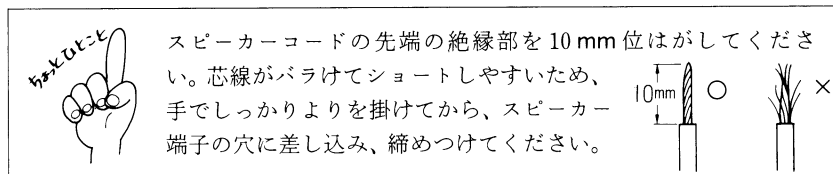 ちょっとひとこと
スピーカーコードの先端の絶縁部を10mm位はがしてくださ
い。芯線がバラけてショートしやすいため、
手でしっかりよりを掛けてから、スピーカー
端子の穴に差し込み、締めつけてください。
10mm ○ ×